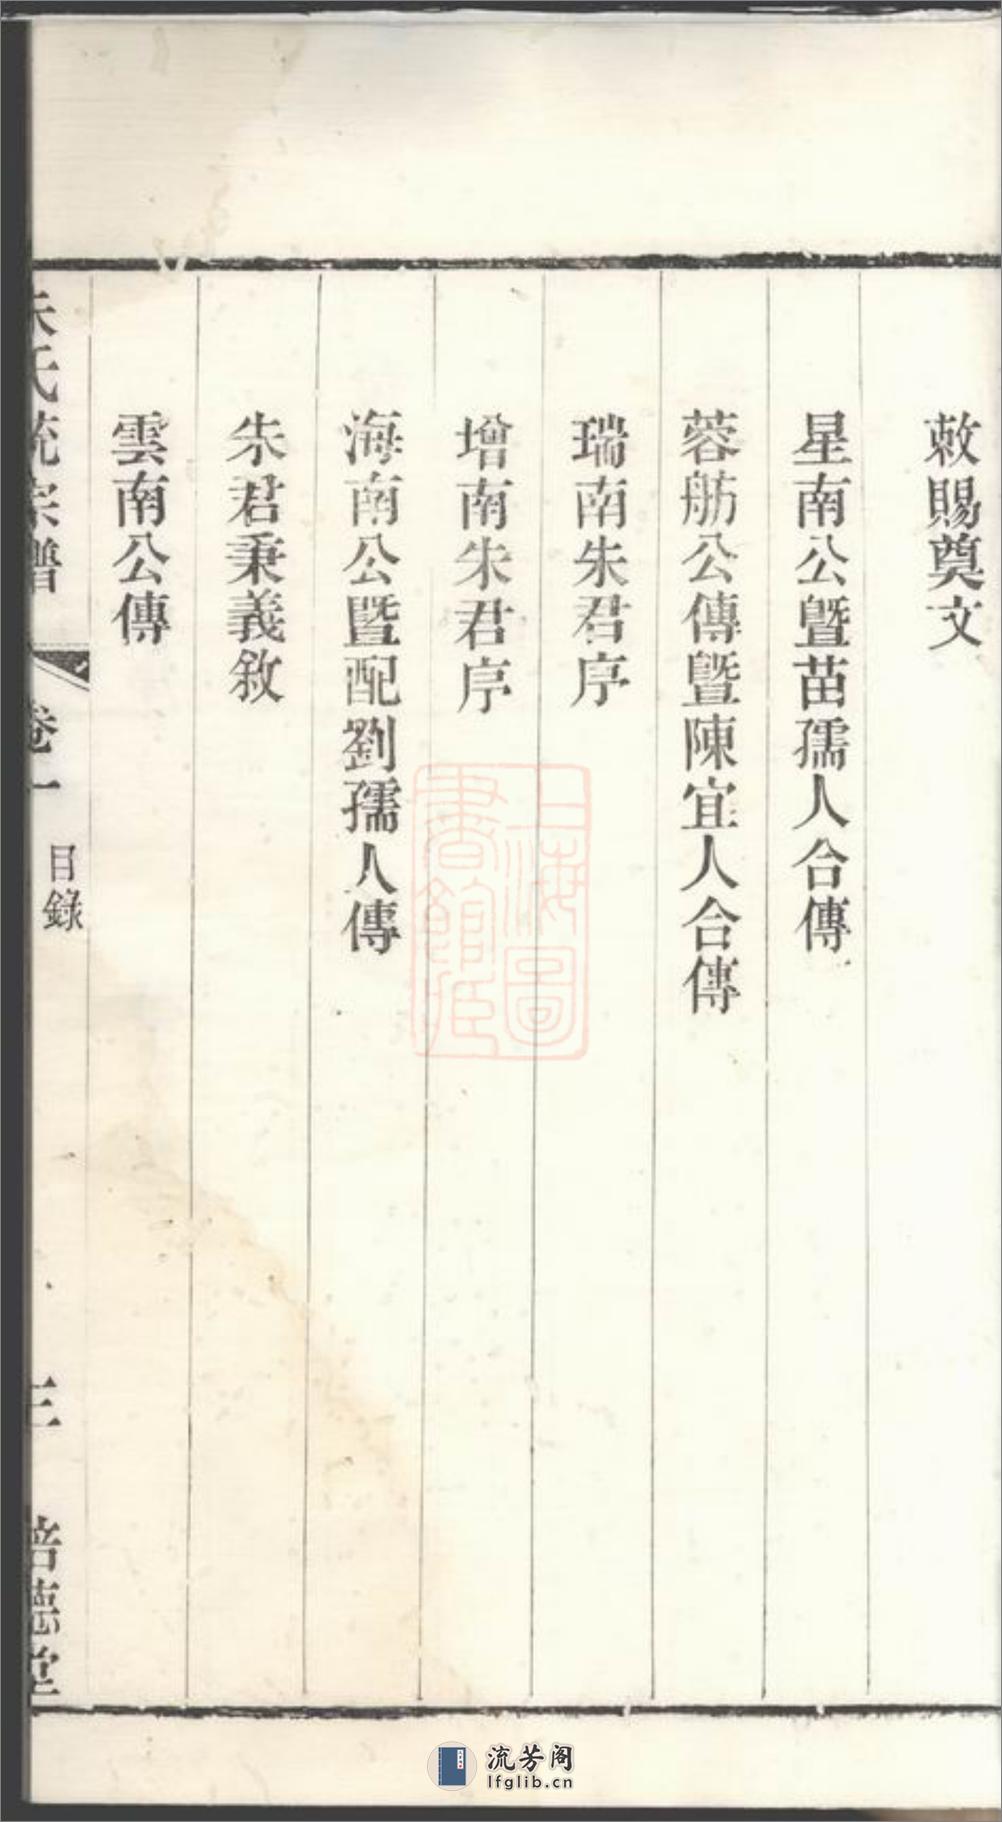 敕賜奠文
星南公暨苗孺人合傳
蓉舫公傳暨陳宜人合傳
瑞南朱君序
增南朱君序
海南公暨配劉孺人傳
朱君秉義敘
雲南公傳
朱氏統宗譜
卷一
目錄
三
培德堂
上海圖
書館藏
流芳阁
lfglib.cn